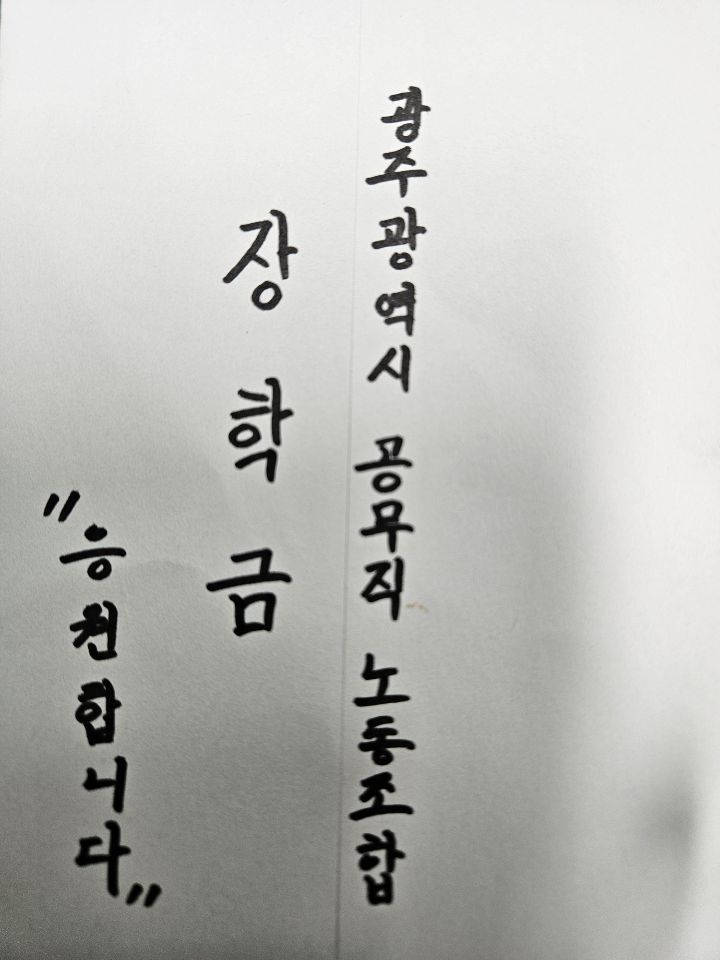 광주광역시 공무직 노동조합
장학금
"응원합니다"